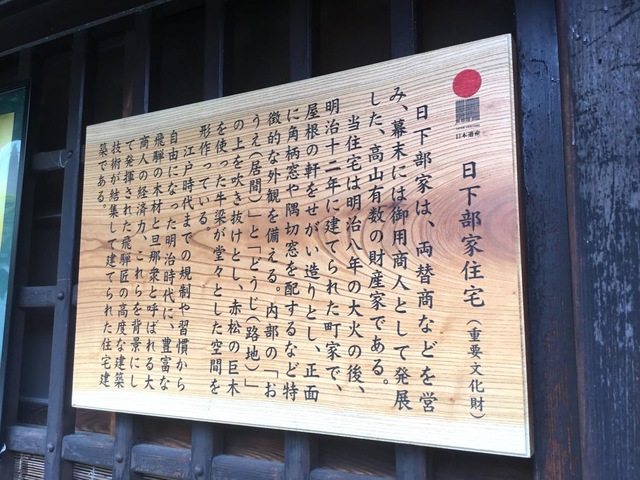 日本遺産
日下部家住宅（重要文化財）
日下部家は、両替商などを営
み、幕末には御用商人として発展
した、高山有数の財産家である。
当住宅は明治八年の大火の後、
明治十二年に建てられた町家で、
屋根の軒をせがい造りとし、正面
に角柄窓や隅切窓を配するなど特
徴的な外観を備える。内部の「お
うえ（居間）」と「どうじ（路地）」
の上を吹き抜けとし、赤松の巨木
を使った牛梁が堂々とした空間を
形作っている。
江戸時代までの規制や習慣から
自由になった明治時代に、豊富な
飛騨の木材と旦那衆と呼ばれる大
商人の経済力、これらを背景にし
て発揮された飛騨匠の高度な建築
技術が結集して建てられた住宅建
築である。